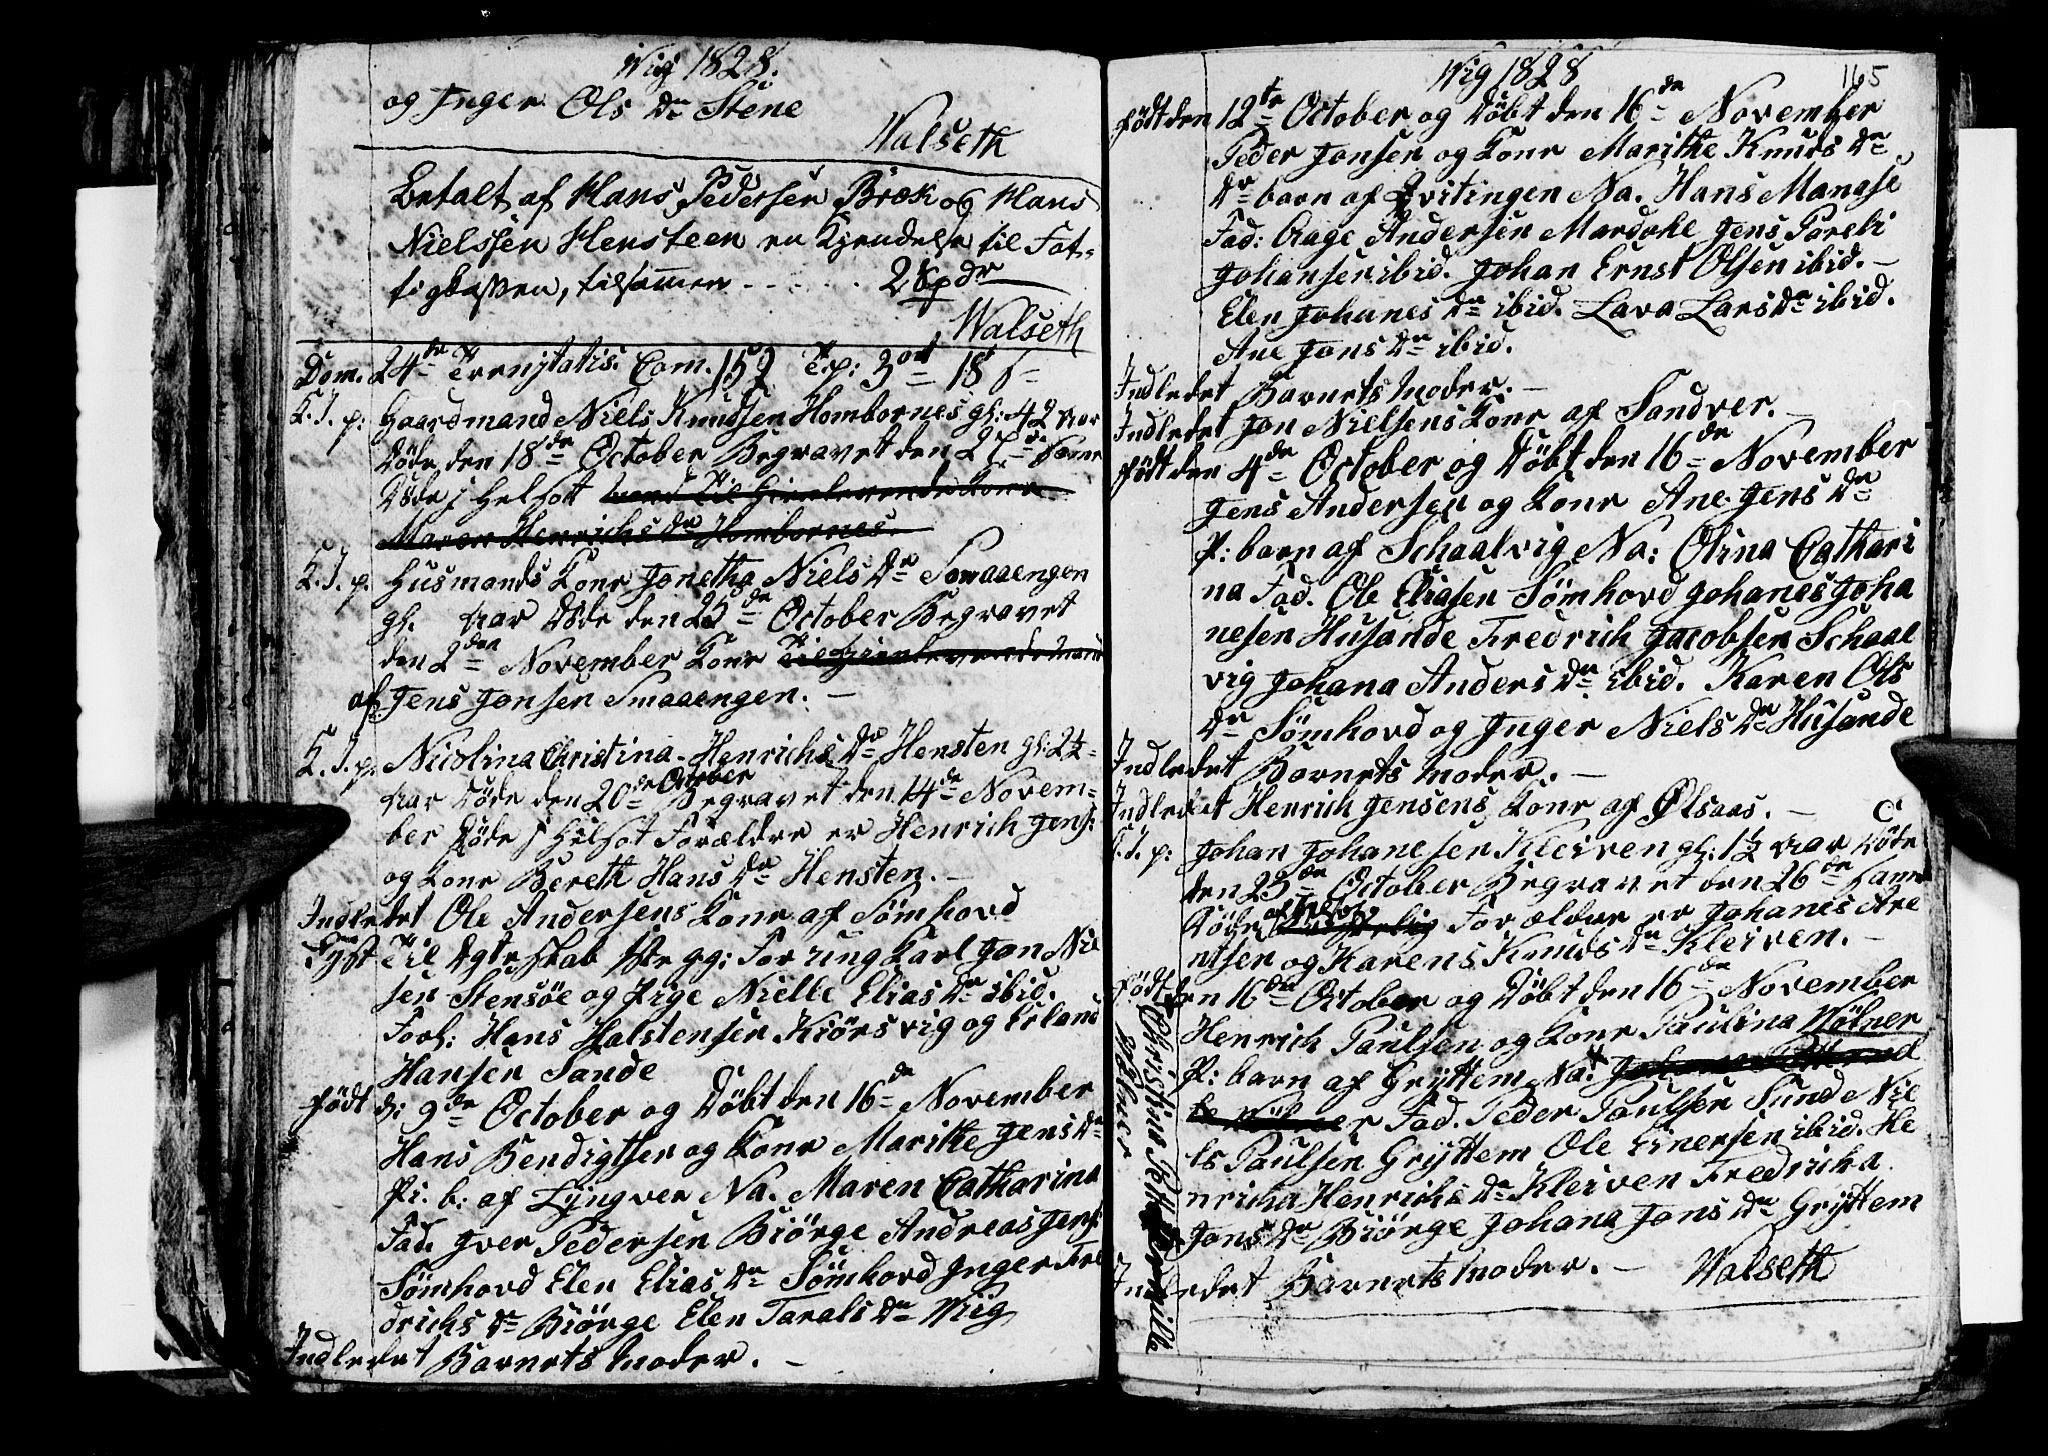 Wig 1828.
og Inger Ols Dr Stene
Walseth
Betalt af Hans Pedersen Bræk og Hans
Nielssen Hensteen en Kjendelse til Fat-
tigkassen, tilsamen - - - - - 2 Spdr
Walseth
Dom. 24de Trenjtatis. Com. 159 T.p: 3 ort 18 s
K. J. p: Gaardmand Niels Knudsen Hombornes gl: 42 Aar
Døde den 18de October Begravet den 27de samme
Døde i Helsott
Maren Henrichs Dr Hombornes.
K. J. p. Husmands Kone Jonetha Niels Dr Smaaengen
gl. Aar Døde den 25de October Begravet
den 2den November Kone
af Jens Jonsen Smaaengen. -
K. J. p: Nicolina Christina Henrichs Dr Hensten gl: 2½-
Aar Døde den 20de October Begravet den 14de Novem-
ber Døde i Helsot Forældre er Henrich Jens:
og Kone Bereth Hans Dr Hensten. -
Indledet Ole Andersens Kone af Sømhovd
Til Egteskab Begg: For ung Karl Jon Niel
sen Stensøe og Pige Nielle Elias Dr ibid.
Forl: Hans Halstensen Kiørsvig og Erland
Hansen Sande
født d: 9de October og Døbt den 16de November
Hans Bendigtsen og Kone Marithe Jens Dr
P: b: af Lyngver Na. Maren Catharina
Fad. Iver Pedersen Biørge Andreas Jens:
Sømhovd Elen Elias Dr Sømhovd Inger Fre
drichs Dr Biørge Elen Tarals Dr Wiig
Indledet Barnets Moder. -
Wig 1828
165
født den 12te October og Døbt den 16de November
Peder Jonsen og Kone Marithe Knuds Dr
Dr barn af Qvitingen Na. Hans Manase
Fad: Aage Andersen Mardske Jens Pareli
Johansen ibid. Johan Ernst Olsen ibid. -
Elen Johanes Dr ibid. Lava Lars Dr ibid.
Ane Jons Dr ibid.
Indledet Barnets Moder. -
Indledet Jon Nielsens Kone af Sandver. -
født den 4de October og Døbt den 16de November
Jens Andersen og Kone Ane Jens Dr
P: barn af Schaalvig Na: Olina Cathari
na Fad. Ole Eliasen Sømhovd Johanes Joha
nesen Husande Fredrich Jacobsen Schaal
vig Johana Anders Dr ibid. Karen Ols
Dr Sømhovd og Inger Niels Dr Husande
Indledet Barnets Moder. -
Indledet Henrich Jensens Kone af Ølsaas. -
K. J. p: Johan Johanesen Kleiven gl: 1½ Aar Døde
den 23de October Begravet den 26de samme
Døde af Helsot Forældre er Johanes Are
ntsen og Karen Knuds Dr Kleiven. -
født den 16de October og Døbt den 16de November
Henrich Paulsen og Kone Paulina Wølner
P: barn af Gryttem Na:
Fad. Peder Paulsen Sund Nie
ls Paulsen Gryttem Ole Einersen ibid. He
nricha Henrichs Dr Kleiven Fredricha
Jons Dr Biørge Johana Jons Dr Gryttem
Indledet Barnets Moder. - Walseth
Christine Petternille
Wølner